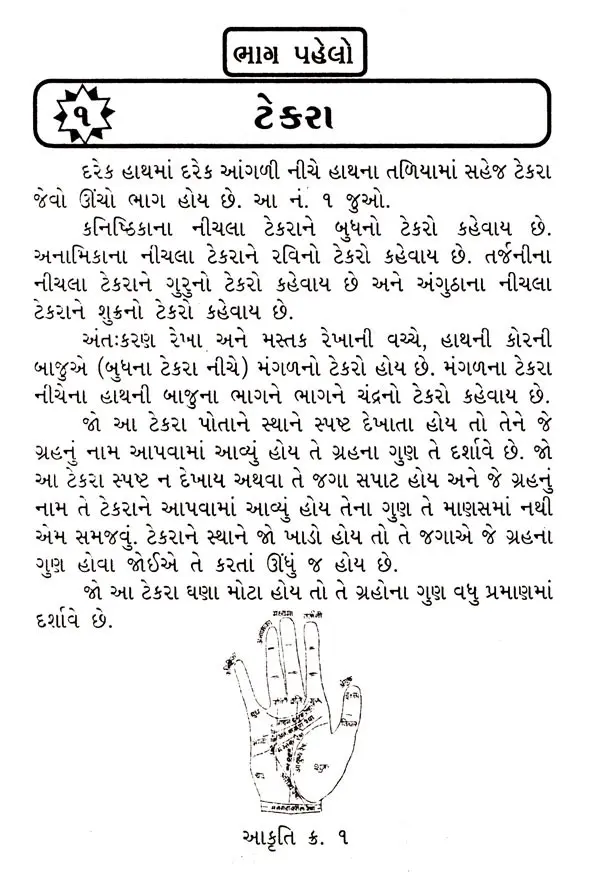 ભાગ પહેલો
૧
ટેકરા
દરેક હાથમાં દરેક આંગળી નીચે હાથના તળિયામાં સહેજ ટેકરા
જેવો ઊંચો ભાગ હોય છે. આ નં. ૧ જુઓ.
કનિષ્ઠિકાના નીચલા ટેકરાને બુધનો ટેકરો કહેવાય છે.
અનામિકાના નીચલા ટેકરાને રવિનો ટેકરો કહેવાય છે. તર્જનીના
નીચલા ટેકરાને ગુરુનો ટેકરો કહેવાય છે અને અંગુઠાના નીચલા
ટેકરાને શુક્રનો ટેકરો કહેવાય છે.
અંતઃકરણ રેખા અને મસ્તક રેખાની વચ્ચે, હાથની કોરની
બાજુએ (બુધના ટેકરા નીચે) મંગળનો ટેકરો હોય છે. મંગળના ટેકરા
નીચેના હાથની બાજુના ભાગને ભાગને ચંદ્રનો ટેકરો કહેવાય છે.
જો આ ટેકરા પોતાને સ્થાને સ્પષ્ટ દેખાતા હોય તો તેને જે
ગ્રહનું નામ આપવામાં આવ્યું હોય તે ગ્રહના ગુણ તે દર્શાવે છે. જો
આ ટેકરા સ્પષ્ટ ન દેખાય અથવા તે જગા સપાટ હોય અને જે ગ્રહનું
નામ તે ટેકરાને આપવામાં આવ્યું હોય તેના ગુણ તે માણસમાં નથી
એમ સમજવું. ટેકરાને સ્થાને જો ખાડો હોય તો તે જગાએ જે ગ્રહના
ગુણ હોવા જોઈએ તે કરતાં ઊંધું જ હોય છે.
જો આ ટેકરા ઘણા મોટા હોય તો તે ગ્રહોના ગુણ વધુ પ્રમાણમાં
દર્શાવે છે.
આકૃતિ ક્ર. ૧